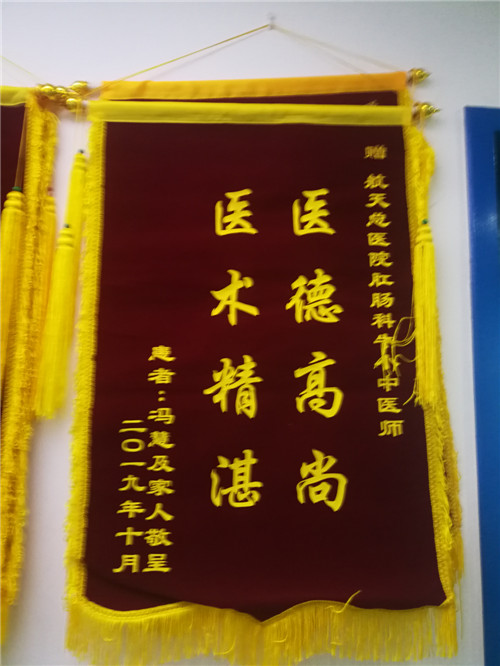 赠 航天总医院肛肠科中医师
医德高尚
医术精湛
患者：冯慧及家人敬呈
二〇一九年十月